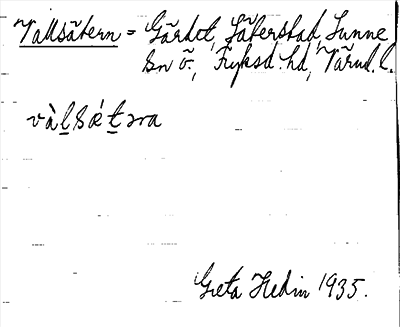 Vallsätern = Gärdet, Säterstad, Sunne
sn ö., Fryksd. hd, Värml. l.
vàlsætɔra
Greta Hedin 1935.